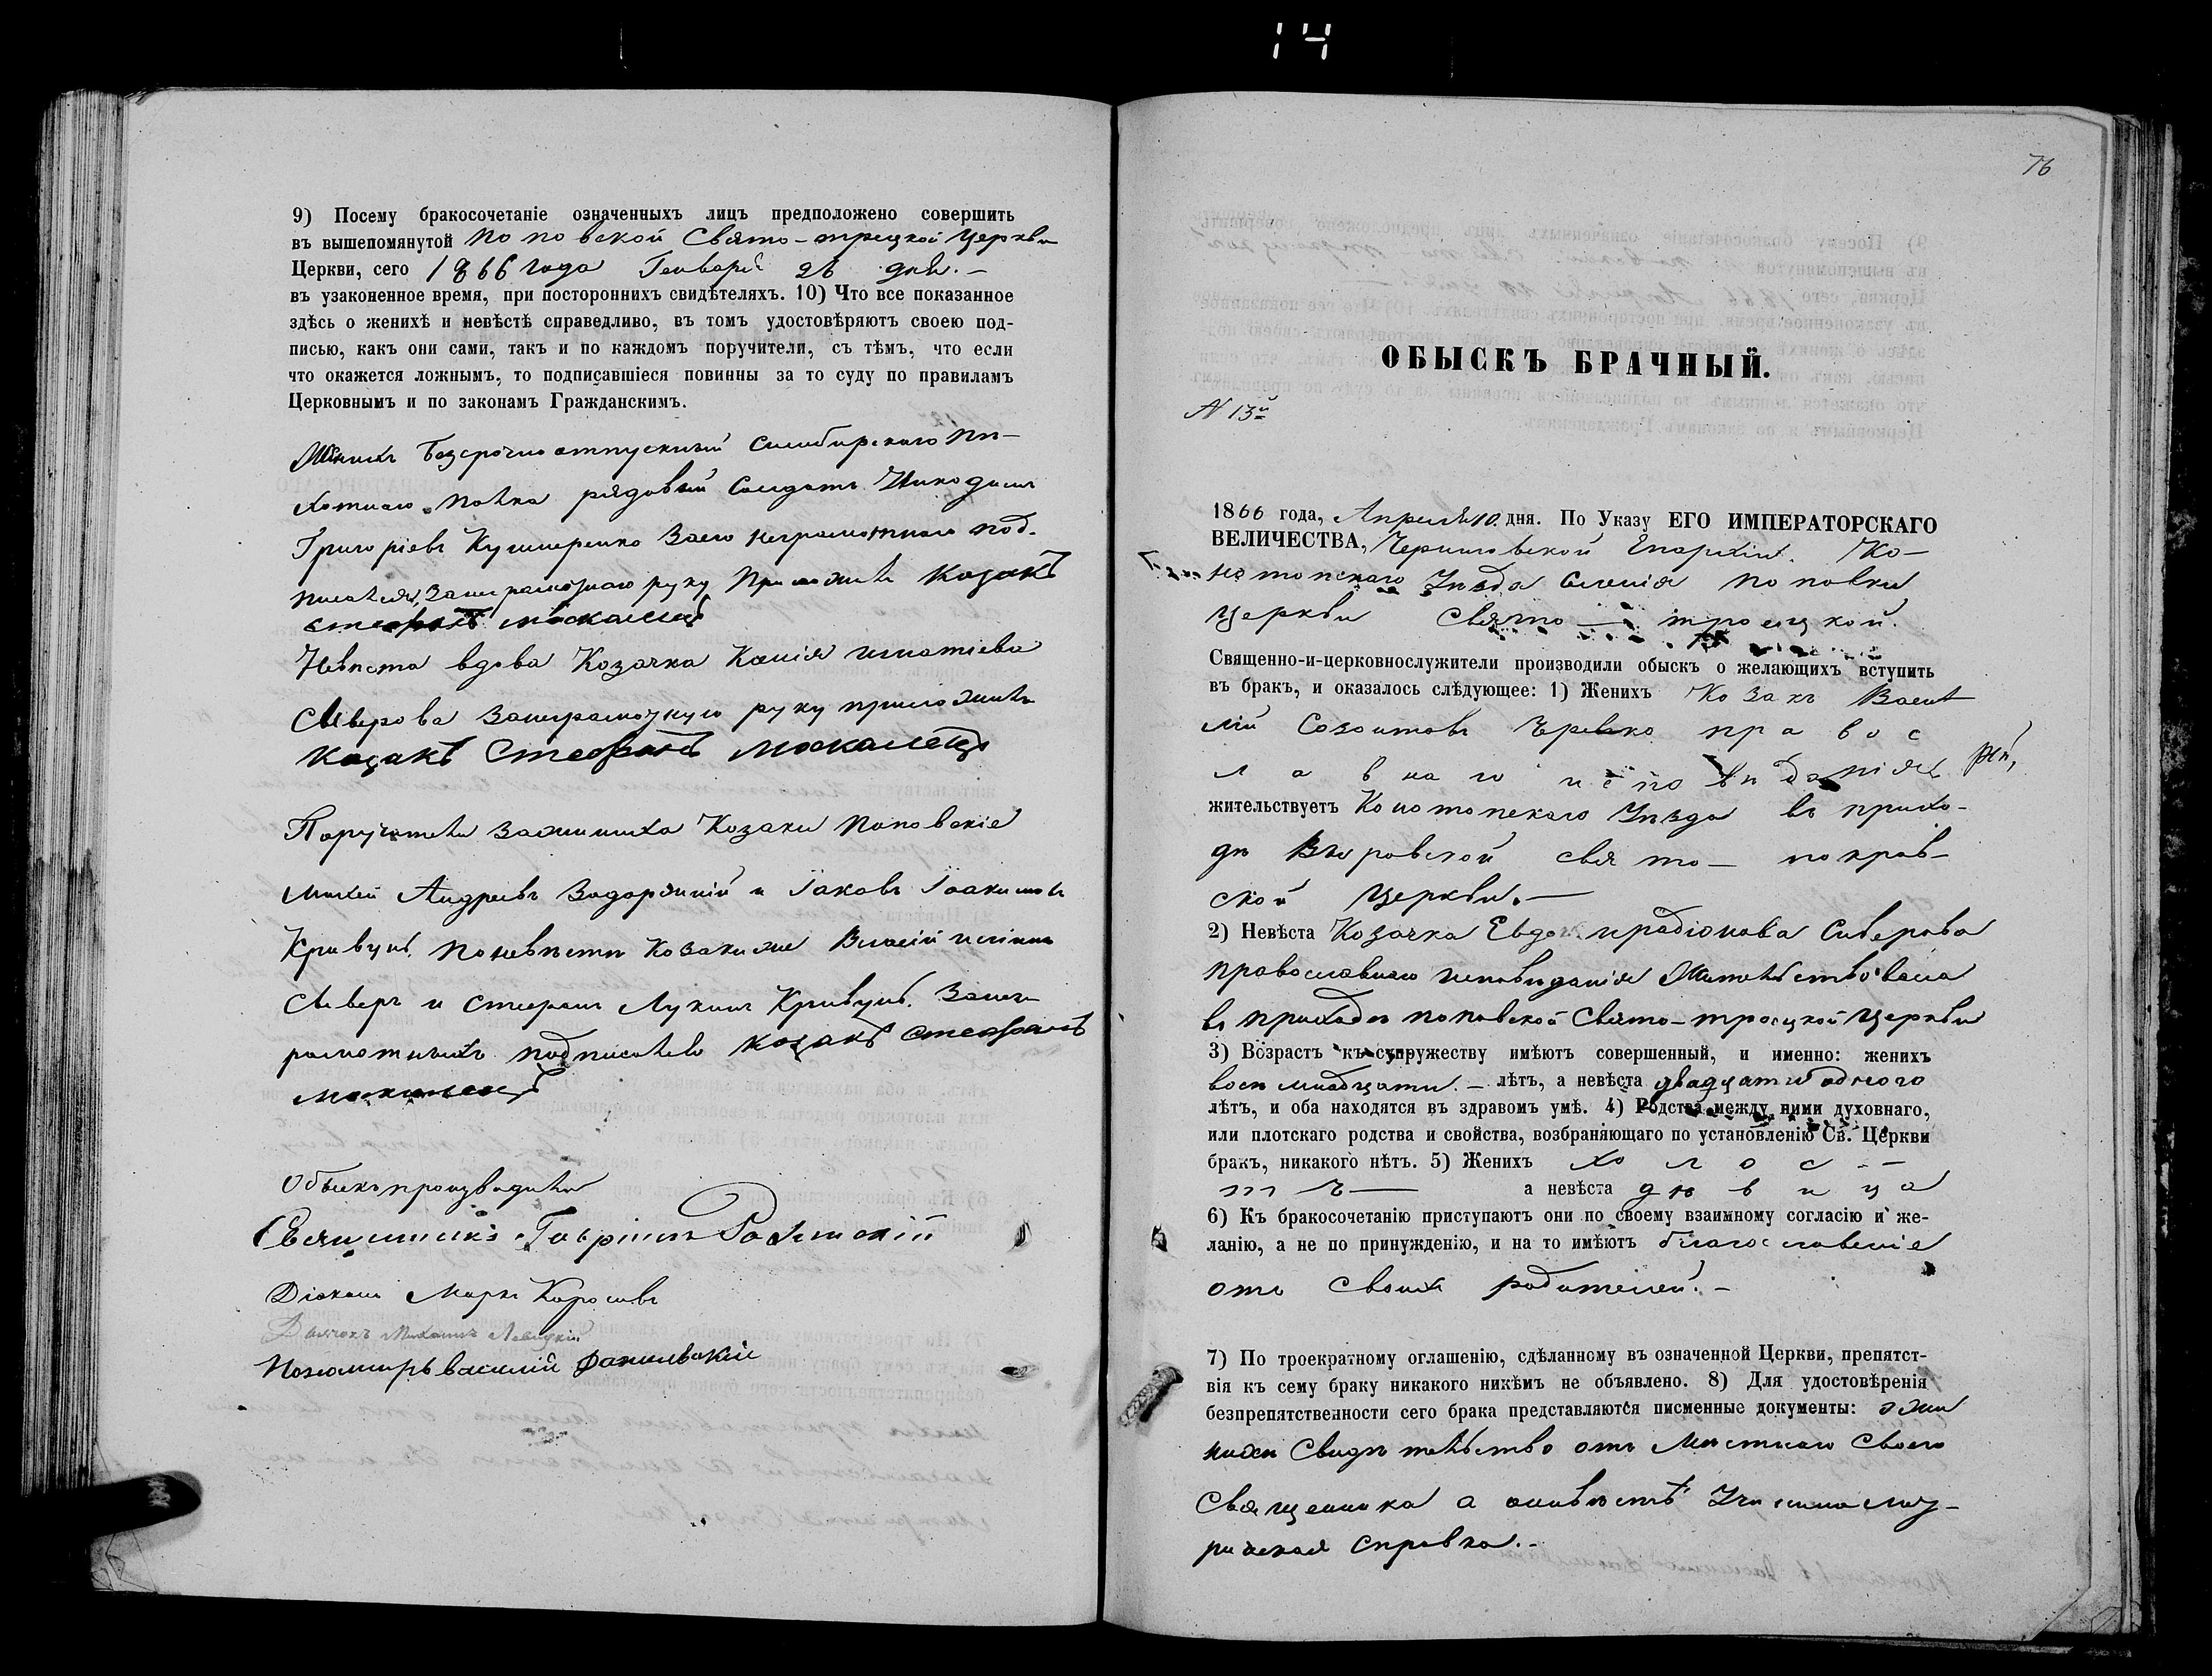 14
9) Посему бракосочетаніе означенныхъ лицъ предположено совершить
въ вышепомянутой Поповской Свято-троцкой Церкви
Церкви, сего 1866 года Генваря 26 дня.-
въ узаконенное время, при постороннихъ свидѣтеляхъ. 10) Что все показанное
здѣсь о женихѣ и невѣстѣ справедливо, въ томъ удостовѣряютъ своею под-
писью, какъ они сами, такъ и по каждомъ поручители, съ тѣмъ, что если
что окажется ложнымъ, то подписавшіеся повинны за то суду по правиламъ
Церковнымъ и по законамъ Гражданскимъ.
Женихъ безсрочноотпускный Симбирскаго пѣ-
хотнаго полка рядовый Солдатъ Никодимъ
Григоріевъ Кушнеренко Заего неграмотнаго под-
писался, руку Приложилъ Козакъ
Стефанъ Москалецъ
Невѣста вдова Козачка Ксенія Игнатіева
Сѣверова Занеграмотную руку приложилъ
Козакъ Стефанъ Москалецъ
Поручатели Зажениха Козаки Поповскіе
Михей Андреевъ Задорожній и Іаковъ Іоакимовъ
Кривунъ. Поневѣстѣ Козаки же Власій
Сѣверъ и Стефанъ Лукинъ Кривунъ. Занег-
рамотныхъ подписался Козакъ Стефанъ
Москалецъ
Обыскъ производили
Священникъ Гавріилъ
Діаконъ Маркъ Коросивъ
Дьячокъ Михаилъ Левицкій
Пономарь Василій Данилевскій
76
ОБЫСКЪ БРАЧНЫЙ.
N 13й
1866 года, Апреля 10 дня. По Указу ЕГО ИМПЕРАТОРСКАГО
ВЕЛИЧЕСТВА, Черниговской Епархіи. Ко-
нотопскаго Уѣзда Селенія Поповки
Церкви Свято-троецкой.
Священно-и-церковнослужители производили обыскъ о желающихъ вступить
въ бракъ, и оказалось слѣдующее: 1) Женихъ Козакъ Васи-
лій Созонтовъ правос
лавнаго исповѣданія
жительствуетъ Конотопскаго Уѣзда въ прихо-
дѣ Вировской свято-покров-
ской Церкви.-
2) Невѣста Козачка Иродіонова Сиверова
православнаго исповѣданія Жительствовала
въ приходѣ поповской Свято-троецкой Церкви
3) Возрастъ къ супружеству имѣютъ совершенный, и именно: женихъ
восемнадцати - лѣтъ, а невѣста двадцати одного
лѣтъ, и оба находятся въ здравомъ умѣ. 4) Родства между ними духовнаго,
или плотскаго родства и свойства, возбраняющаго по установленію Св. Церкви
бракъ, никакого нѣтъ. 5) Женихъ холос-
тъ- а невѣста дѣвица
6) Къ бракосочетанію приступаютъ они по своему взаимному согласію и же-
ланію, а не по принужденію, и на то имѣютъ благословеніе
отъ своихъ родителей.-
7) По троекратному оглашенію, сдѣланному въ означенной Церкви, препятст-
вія къ сему браку никакого никѣмъ не объявлено. 8) Для удостовѣренія
безпрепятственности сего брака представляются писменные документы: ожи-
нихи Свидѣтельство отъ Мистнаго своего
Священника а оневѣстѣ
справка.-